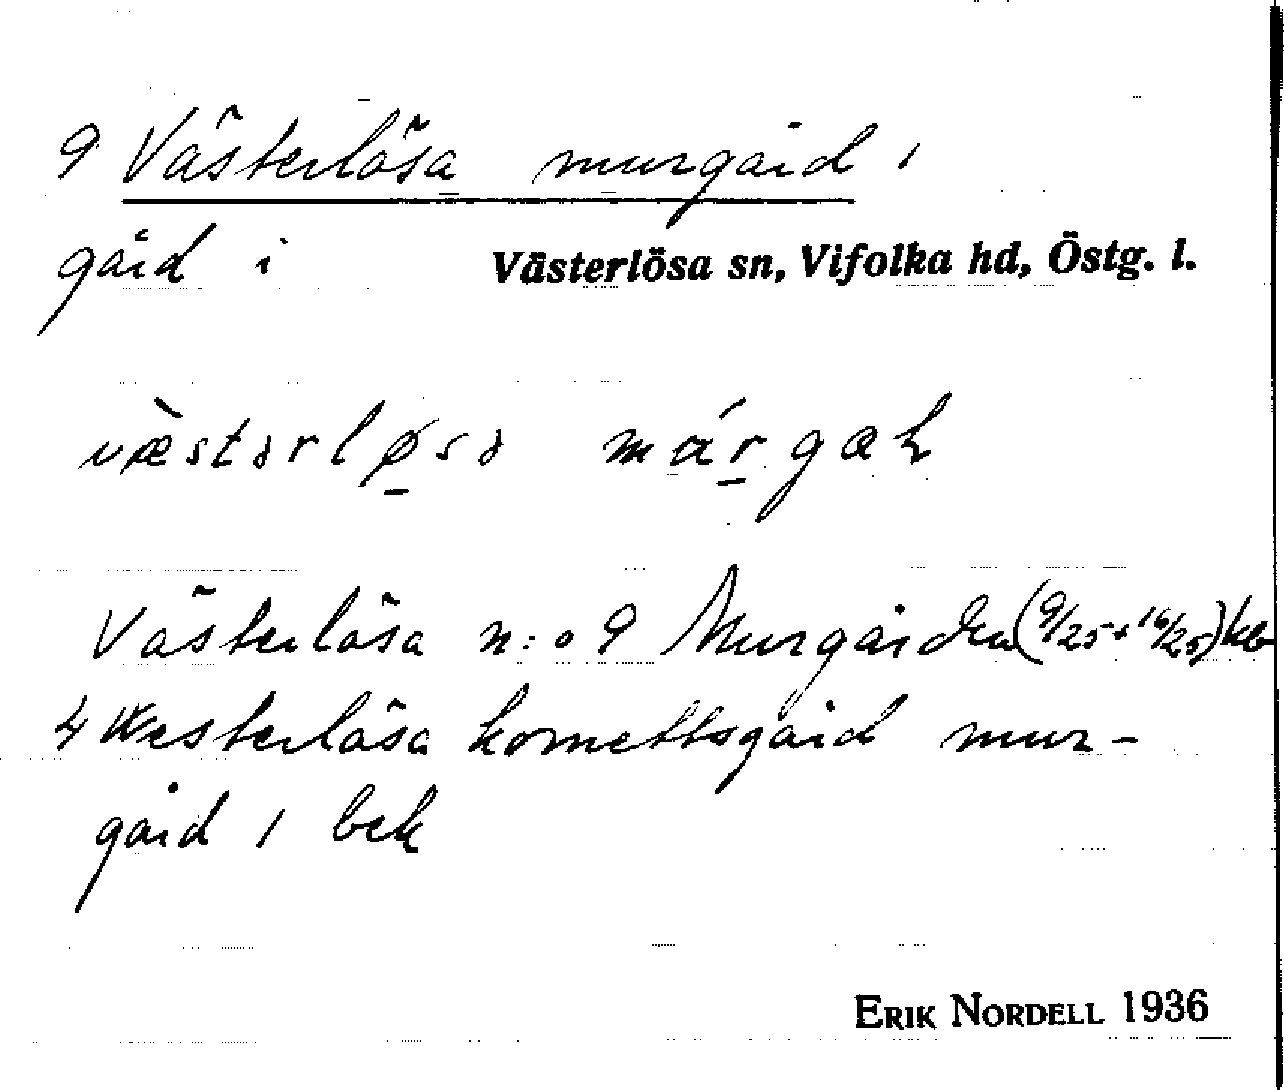 9 Västerlösa murgård 1
gård i Västerlösa sn, Vifolka hd, Östg. l.
væstərløsə
Västerlösa n:o 9 Murgården (9/25+16/25) kb
4 Westerlösa kornettsgård mur-
gård 1 bek
ERIK NORDELL 1936